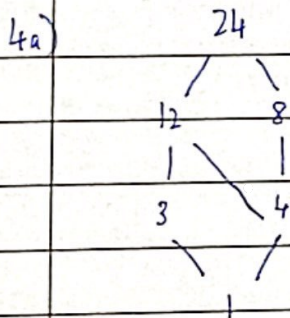 4a) 24
12 8
3 4
1